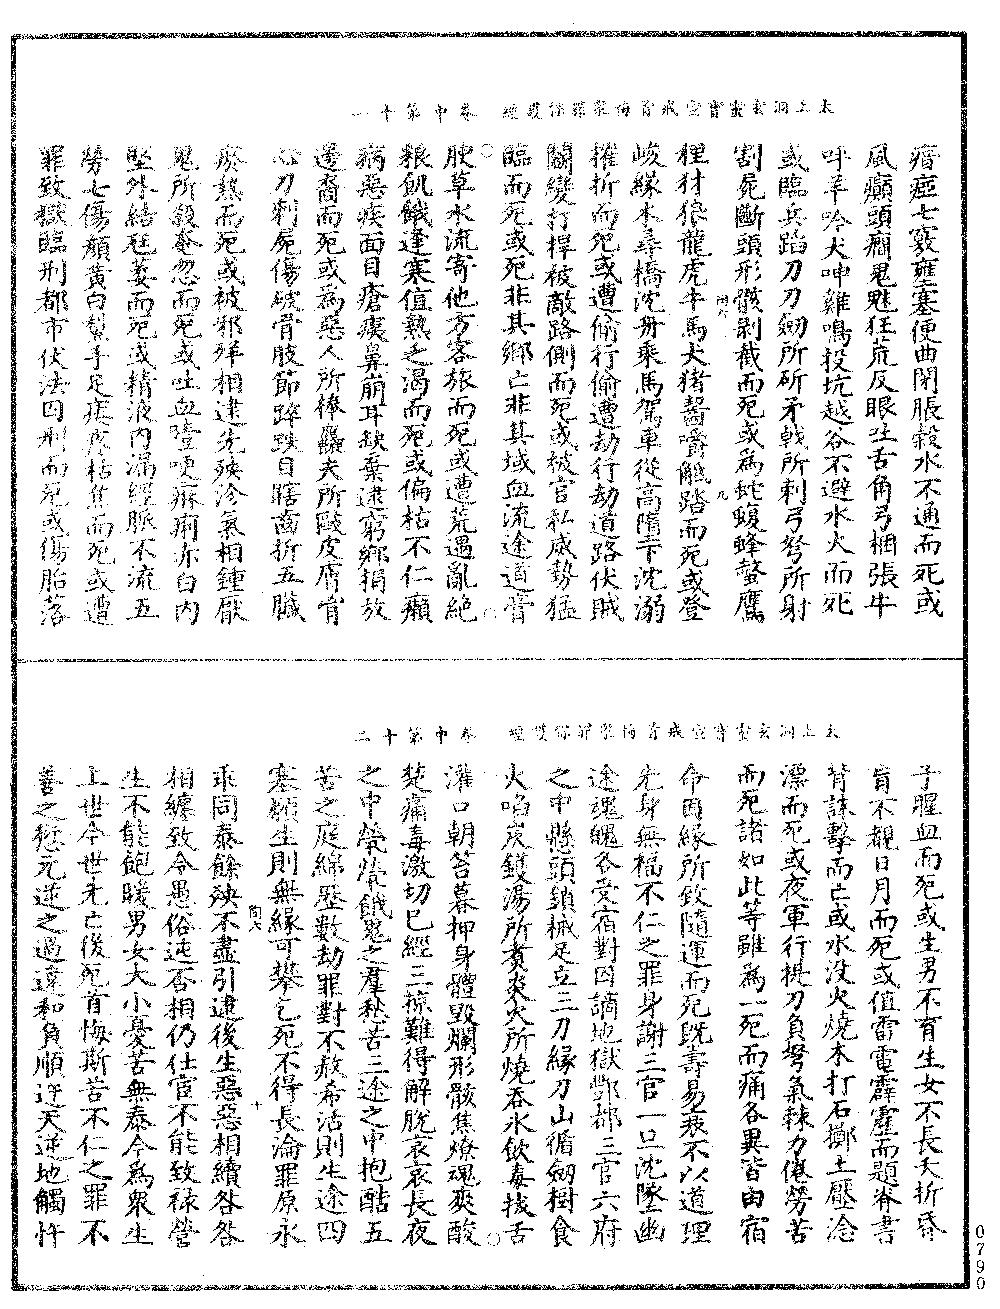 太上洞玄靈寶宣戒首悔眾罪保護經　卷中第十一
瘖瘂七竅壅塞便曲閉脹穀水不通而死或
風癲頭癇鬼魅狂荒反眼吐舌角弓梱張牛
呼羊吟犬呻雞鳴投坑越谷不避水火而死
或臨兵蹈刀刀劒所斫矛戟所刺弓弩所射
割屍斷頭形骸剝截而死或為蛇蝮蜂螫鷹
狸犲狼龍虎牛馬犬猪齧嚼觝踏而死或登
峻緣木尋橋沈舟乘馬駕車從高墮下沈溺
摧折而死或遭偷行偷遭劫行劫道路伏賊
鬬變打桿被敵路側而死或被官私威勢猛
臨而死或死非其鄉亡非其域血流途道膏
腴草水流寄他方客旅而死或遭荒遇亂絕
粮飢餓逢寒值熱乏渴而死或偏枯不仁癩
病惡疾面目瘡瘻鼻崩耳缺棄逮窮鄉捐放
邊裔而死或為惡人所棒麤夫所毆皮膚骨
心刀刺屍傷破骨肢節踤跌目瞎齒折五臟
瘀熱而死或被邪殗相逮先殃沴氣相鍾厭
鬼所殺奄忽而死或吐血噎哽痳痢赤白內
堅外結尫萎而死或精液內漏經脈不流五
勞七傷顏黃白墼手足痿皮枯焦而死或遭
罪致獄臨刑都市伏法囚刑而死或傷胎落
太上洞玄靈寶宣戒首悔眾罪保護經　卷中第十二
子腥血而死或生男不育生女不長夭折昏
盲不覩日月而死或值雷電霹靂而題脊書
背誅擊而亡或水沒火燒木打石擲土壓淰
漂而死或夜軍行提刀負弩氣棘力倦勞苦
而死諸如此等雖為一死而痛各異皆由宿
命因緣所致隨運而死既壽易衰不以道理
先身無福不仁之罪身謝三官一旦沈墜幽
途魂魄各受宿對囚謫地獄酆都三官六府
之中懸頭鎖械足立三刀緣刀山循劒樹食
火焰炭鑊湯所煑炎火所燒吞氷飲毒拔舌
灌口朝笞暮押身體毀爛形骸焦燎魂爽酸
楚痛毒激切巳經三掠難得解脫哀哀長夜
之中煢煢餓鬼之羣愁苦三途之中抱酷五
苦之庭綿歷數劫罪對不赦希活則生途四
塞願生則無緣可攀乞死不得長淪罪原永
乖同泰餘殃不盡引逮後生惡惡相續咎咎
相纏致令愚俗迍否相仍仕宦不能致祿營
生不能飽暖男女大小憂苦無泰今為眾生
上世今世先亡後死首悔斯苦不仁之罪不
善之愆元逆之過違和負順逆天逆地觸忤
陶六　九
陶六　十
0790